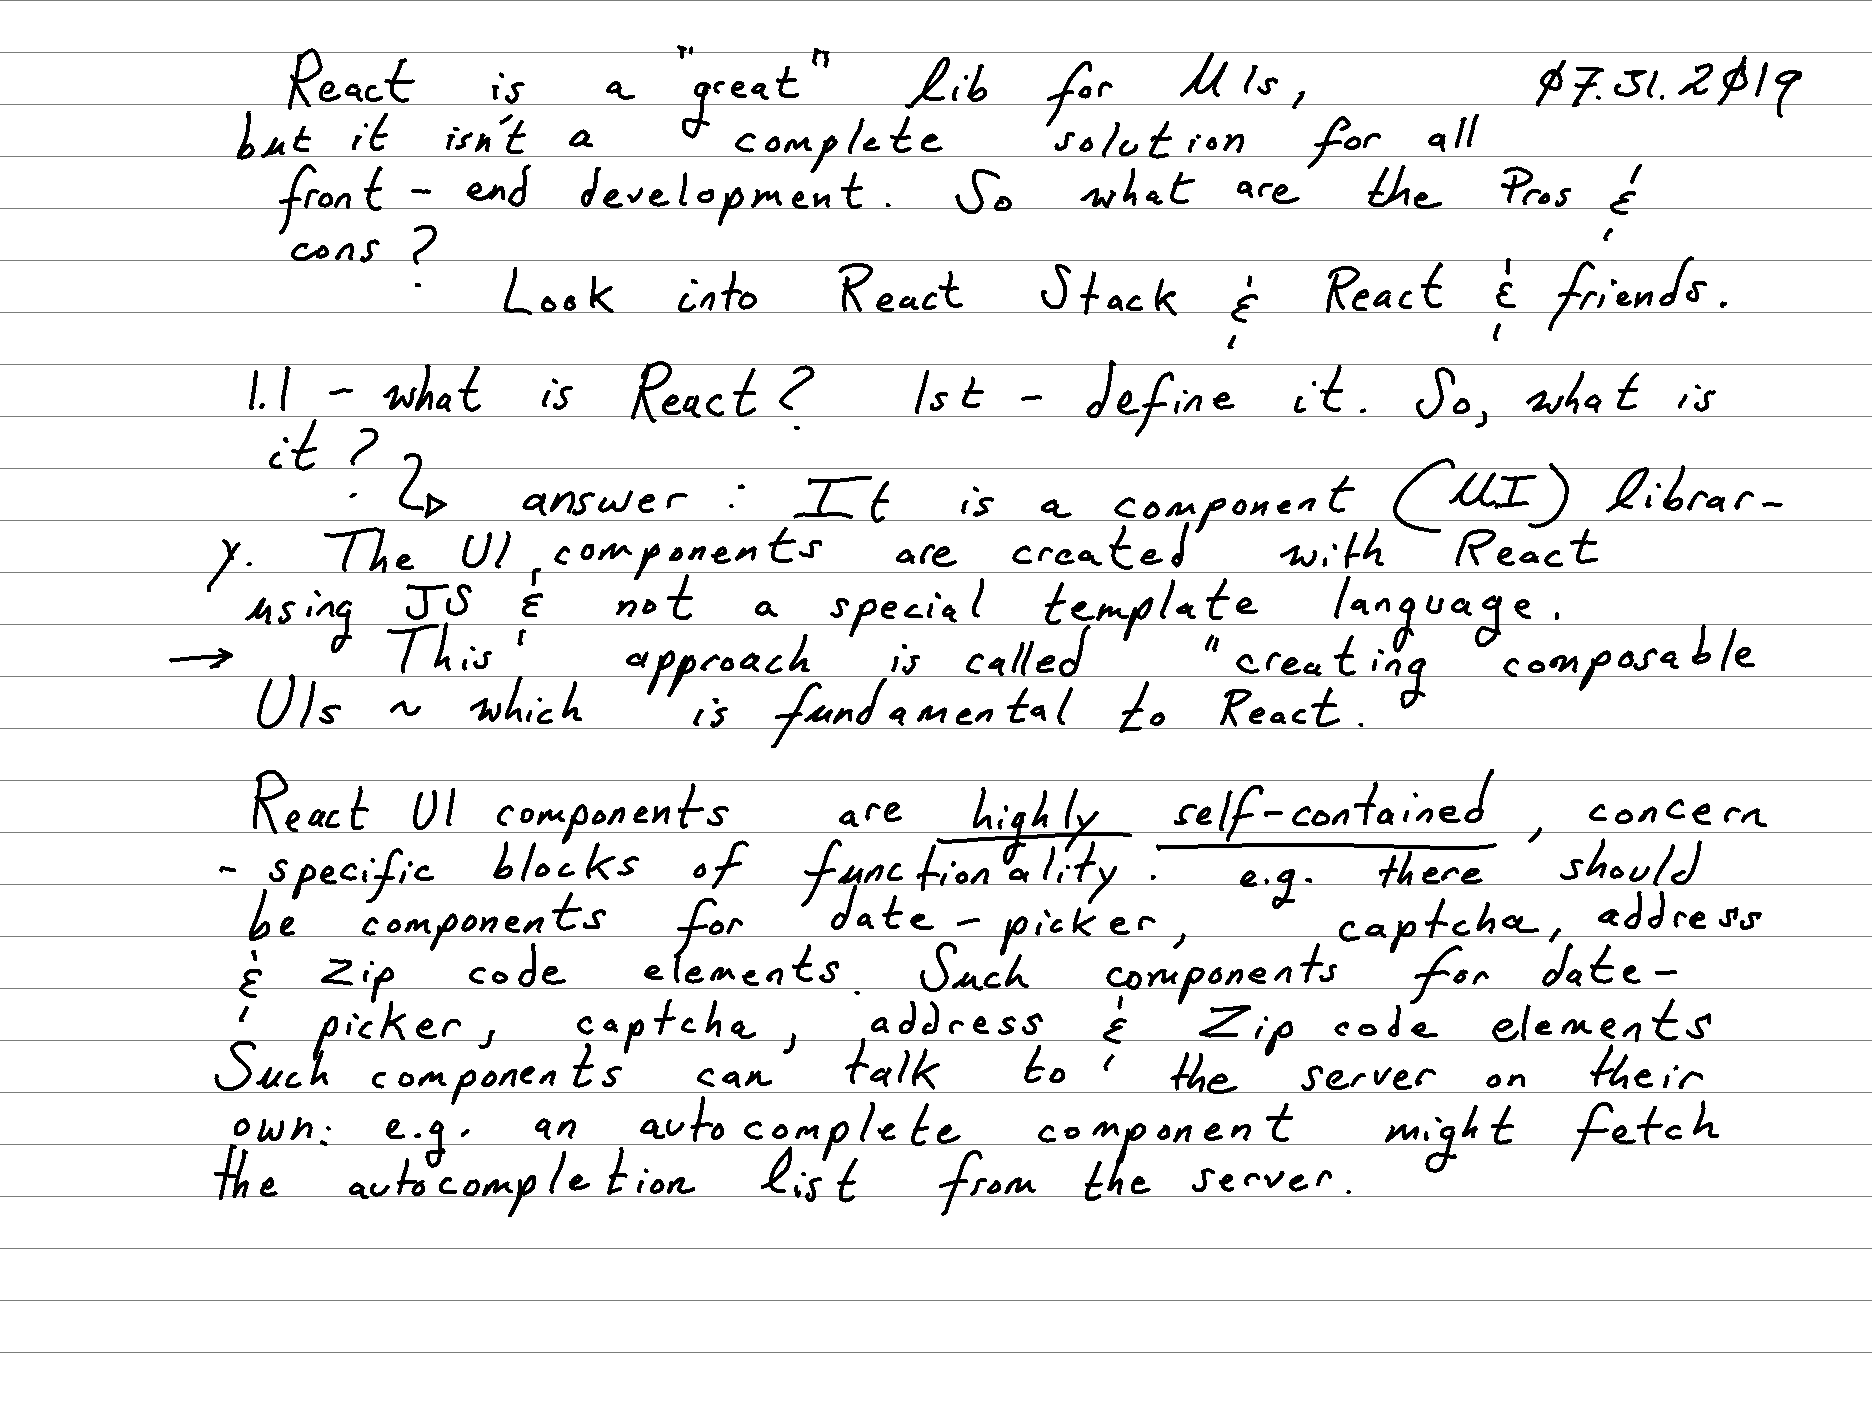 React is a "great" lib for UIs, 07.31.2019
but it isn't a complete solution for all
front - end development. So what are the Pros &
cons?
Look into React Stack & React & friends.
1.1 - what is React? 1st - define it. So, what is
it?
answer: It is a component (UI) librar-
y. The UI components are created with React
using JS & not a special template language.
→ This approach is called "creating composable
UIs ~ which is fundamental to React.
React UI components are highly self-contained, concern
- specific blocks of functionality. e.g. there should
be components for date-picker, captcha, address
& zip code elements. Such components for date-
picker, captcha, address & Zip code elements
Such components can talk to the server on their
own: e.g. an autocomplete component might fetch
the autocompletion list from the server.